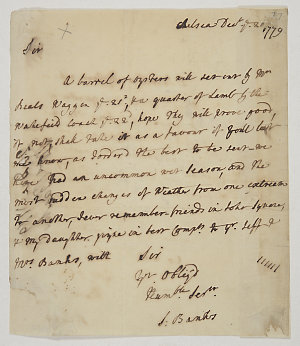 Chelsea Decr ye 20
1779
Sir
A barrel of oysters will set out by Mr
Beals Waggon ye 21st, & a quarter of Lamb by the
Wakefield Coach ye 22, hope they will prove good,
if not shall take it as a favour if you'll let
me know, as I orderd the best to be sent we
have had an uncommon wet season, and the
most sudden changes of Weather from one extream
to another, I ever remember. friends in
my Daughter joyne in best Complts to yr. self &
Mrs Banks, with
Sir
yr Obligd
Humble Servt
S. Banks